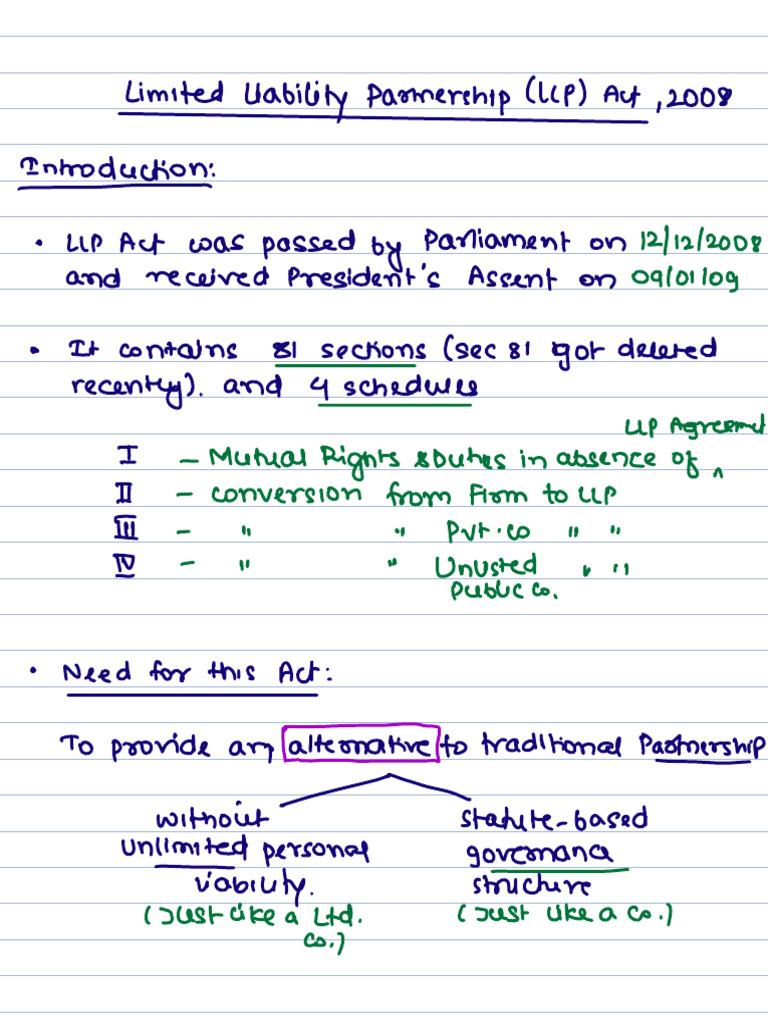 Limited Liability Partnership (LLP) Act, 2008
Introduction:
• LLP Act was passed by Parliament on 12/12/2008
and received President's Assent on 09/01/09
• It contains 81 sections (Sec 81 got deleted
recently). and 4 schedules
LLP Agreement
I - Mutual Rights & Duties in absence of ^
II - conversion from Firm to LLP
III - " " Pvt. co " "
IV - " " Unlisted " "
Public Co.
• Need for this Act:
To provide any alternative to traditional Partnership
without statute-based
unlimited personal governance
liability. structure
(Just like a Ltd. (Just like a Co.)
Co.)